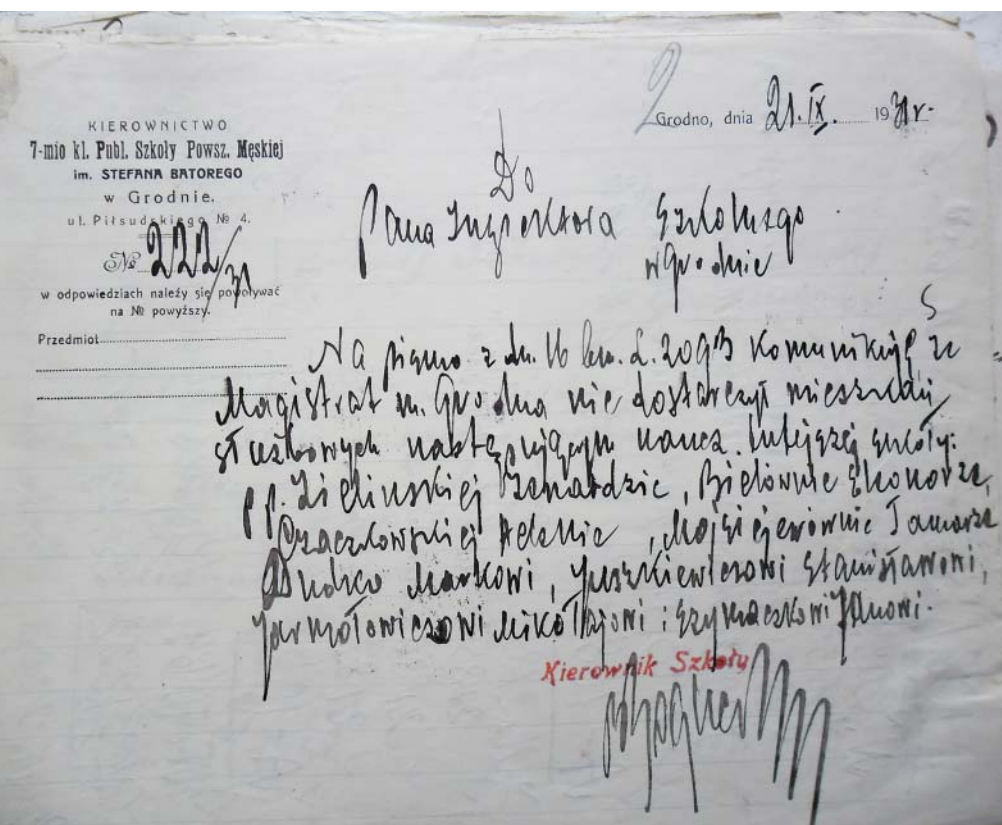 2
Grodno, dnia 21.IX. 1931r.
KIEROWNICTWO
7-mio kl. Publ. Szkoły Powsz. Męskiej
im. STEFANA BATOREGO
w Grodnie.
ul. Piłsudskiego № 4.
№ 222/31
w odpowiedziach należy się powoływać
na № powyższy.
Przedmiot
Do
Pana Inspektora Szkolnego
w Grodnie
Na pismo z dn. 16 bm. L. 2093 komunikuję że
Magistrat m. Grodna nie dostarczył mieszkań
służbowych następującym naucz. tutejszej szkoły:
pp. Zielińskiej, Bielównie
Czaczkowskiej, Mojsiejewównie Tamarze
Markowi, Juszkiewiczowi Stanisławowi,
Jarmołowiczowi Mikołajowi i Szymaczkowi Janowi.
Kierownik Szkoły